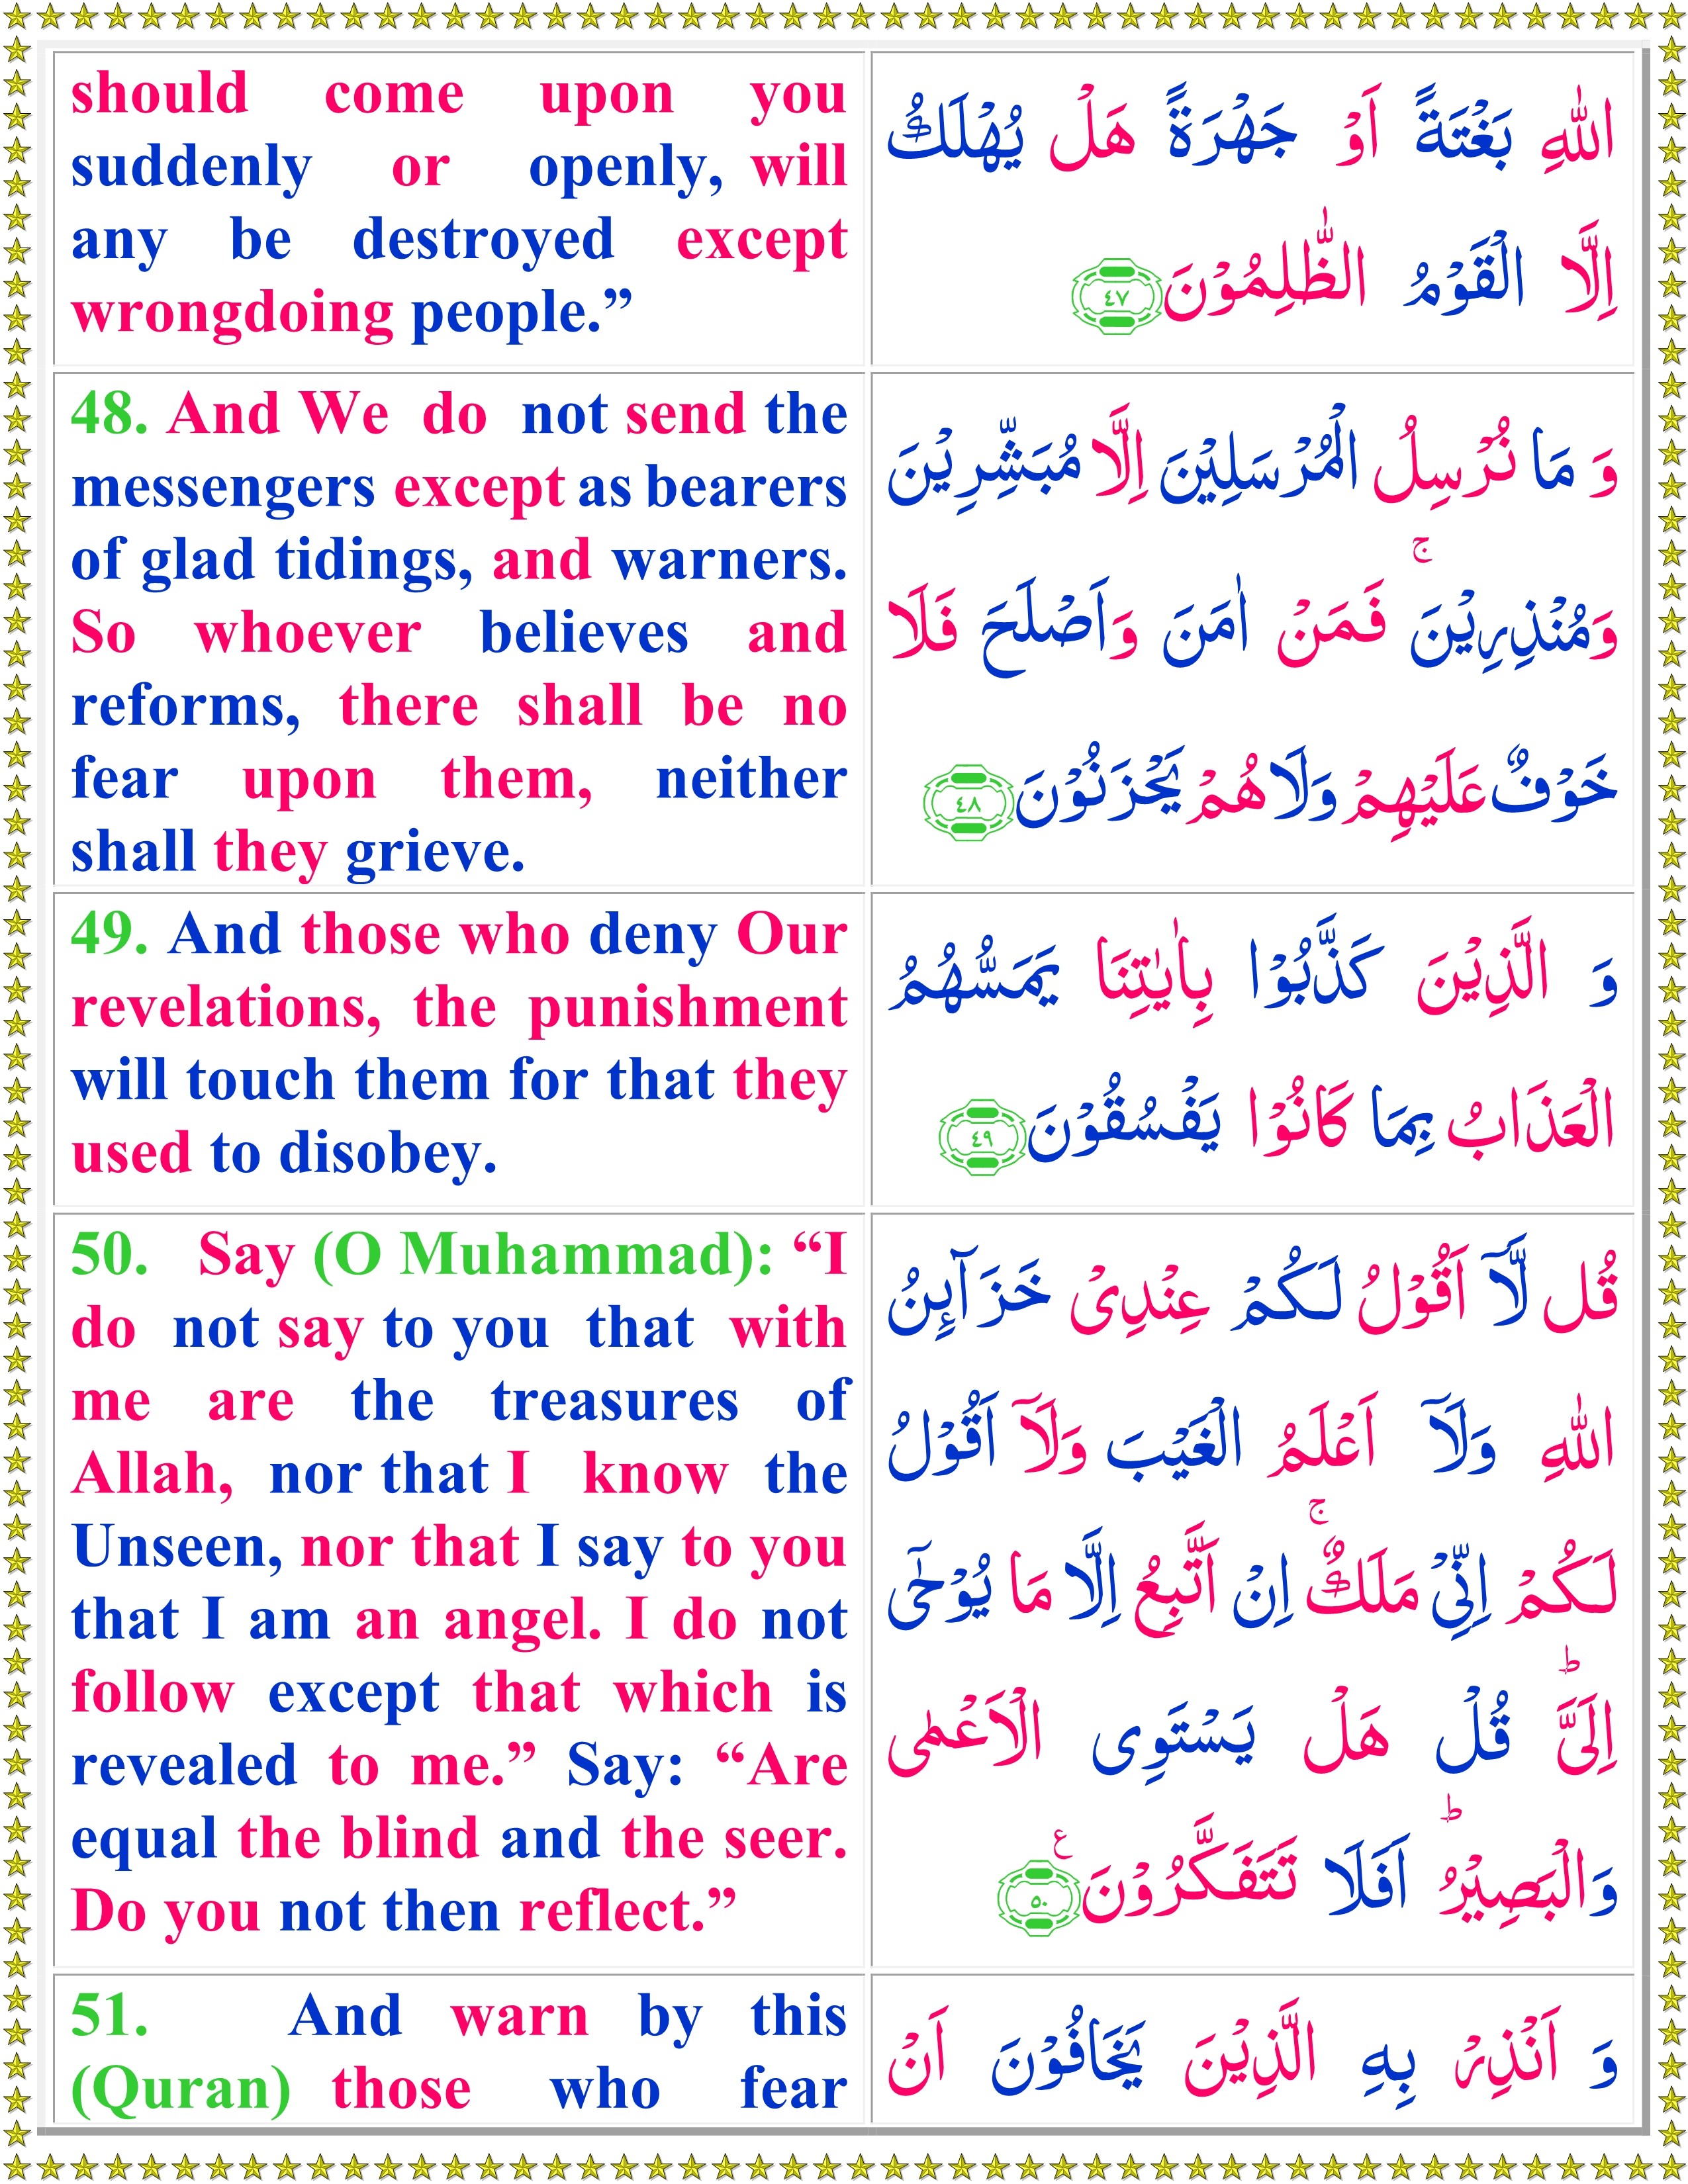 should come upon you
suddenly or openly, will
any be destroyed except
wrongdoing people.”
اللّٰهِ بَغْتَةً اَوْ جَهْرَةً هَلْ يُهْلَكُ
اِلَّا الْقَوْمُ الظّٰلِمُوْنَ ٤٧
48. And We do not send the
messengers except as bearers
of glad tidings, and warners.
So whoever believes and
reforms, there shall be no
fear upon them, neither
shall they grieve.
وَ مَا نُرْسِلُ الْمُرْسَلِيْنَ اِلَّا مُبَشِّرِيْنَ
وَمُنْذِرِيْنَ ۚ فَمَنْ اٰمَنَ وَاَصْلَحَ فَلَا
خَوْفٌ عَلَيْهِمْ وَلَا هُمْ يَحْزَنُوْنَ ٤٨
49. And those who deny Our
revelations, the punishment
will touch them for that they
used to disobey.
وَ الَّذِيْنَ كَذَّبُوْا بِاٰيٰتِنَا يَمَسُّهُمُ
الْعَذَابُ بِمَا كَانُوْا يَفْسُقُوْنَ ٤٩
50. Say (O Muhammad): “I
do not say to you that with
me are the treasures of
Allah, nor that I know the
Unseen, nor that I say to you
that I am an angel. I do not
follow except that which is
revealed to me.” Say: “Are
equal the blind and the seer.
Do you not then reflect.”
قُل لَّاۤ اَقُوْلُ لَكُمْ عِنْدِىْ خَزَآٮِٕنُ
اللّٰهِ وَلَاۤ اَعْلَمُ الْغَيْبَ وَلَاۤ اَقُوْلُ
لَكُمْ اِنِّىْ مَلَكٌ ۚ اِنْ اَتَّبِعُ اِلَّا مَا يُوْحٰٓى
اِلَىَّ ؕ قُلْ هَلْ يَسْتَوِى الْاَعْمٰى
وَالْبَصِيْرُ ؕ اَفَلَا تَتَفَكَّرُوْنَ ٥٠ ع
51. And warn by this
(Quran) those who fear
وَ اَنْذِرْ بِهِ الَّذِيْنَ يَخَافُوْنَ اَنْ